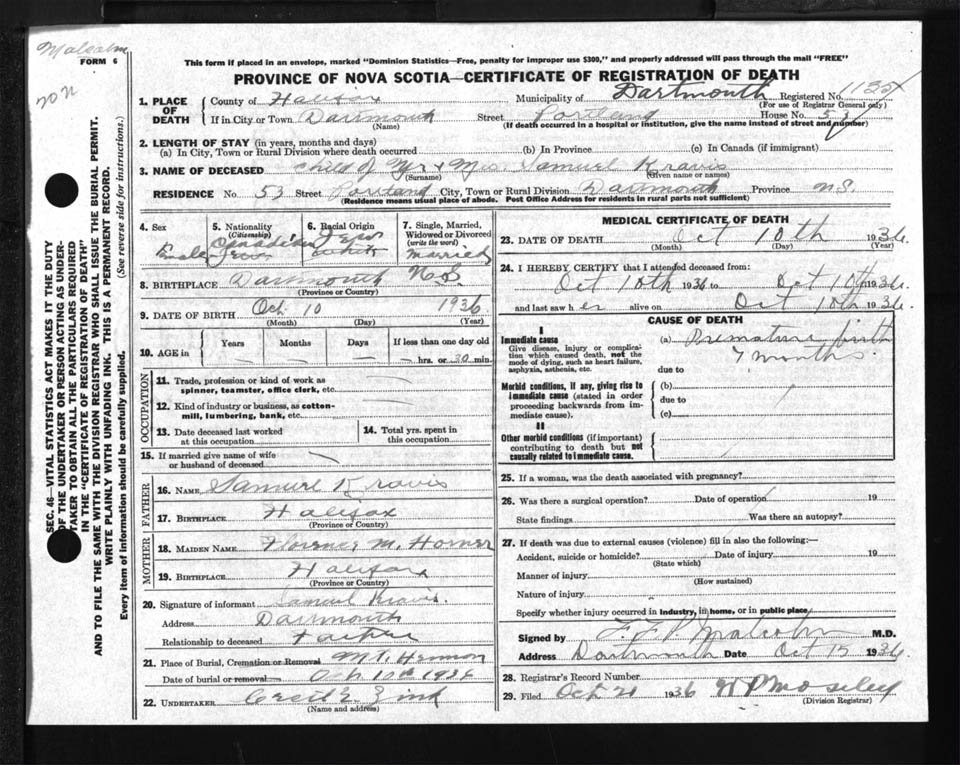 Malcolm
FORM 6
This form if placed in an envelope, marked "Dominion Statistics—Free, penalty for improper use $300," and properly addressed will pass through the mail "FREE"
PROVINCE OF NOVA SCOTIA—CERTIFICATE OF REGISTRATION OF DEATH
1. PLACE OF DEATH
County of Halifax Municipality of Dartmouth Registered No. 1135
(For use of Registrar General only)
If in City or Town Dartmouth Street Portland House No. 53
(Name) (If death occurred in a hospital or institution, give the name instead of street and number)
2. LENGTH OF STAY (in years, months and days)
(a) In City, Town or Rural Division where death occurred (b) In Province (c) In Canada (if immigrant)
3. NAME OF DECEASED Child of Mr + Mrs. Samuel Kravis
(Surname) (Given name or names)
RESIDENCE No 53 Street Portland City, Town or Rural Division Dartmouth Province N.S.
(Residence means usual place of abode. Post Office Address for residents in rural parts not sufficient)
4. Sex
5. Nationality (Citizenship) Canadian
6. Racial Origin
7. Single, Married, Widowed or Divorced (write the word) married
8. BIRTHPLACE Dartmouth N.S.
(Province or Country)
9. DATE OF BIRTH Oct 10 1936
(Month) (Day) (Year)
10. AGE in Years Months Days If less than one day old
hrs. or 30 min.
OCCUPATION
11. Trade, profession or kind of work as spinner, teamster, office clerk, etc.
12. Kind of industry or business, as cotton-mill, lumbering, bank, etc.
13. Date deceased last worked at this occupation
14. Total yrs. spent in this occupation
15. If married give name of wife or husband of deceased
FATHER
16. NAME Samuel Kravis
17. BIRTHPLACE Halifax
(Province or Country)
MOTHER
18. MAIDEN NAME Florence M. Horner
19. BIRTHPLACE Halifax
(Province or Country)
20. Signature of informant Samuel Kravis.
Address Dartmouth
Relationship to deceased Father
21. Place of Burial, Cremation or Removal Mt. Hermon
Date of burial or removal Oct. 10th 1936
22. UNDERTAKER Cecil E. Zink
(Name and address)
MEDICAL CERTIFICATE OF DEATH
23. DATE OF DEATH Oct 10th 1936.
(Month) (Day) (Year)
24. I HEREBY CERTIFY that I attended deceased from:
Oct 10th 1936 to Oct 10th 1936
and last saw h er alive on Oct 10th 1936.
CAUSE OF DEATH
I
Immediate cause
Give disease, injury or complication which caused death, not the mode of dying, such as heart failure, asphyxia, asthenia, etc.
(a) Premature birth
7 months.
due to
Morbid conditions, if any, giving rise to immediate cause (stated in order proceeding backwards from immediate cause).
(b)
due to
(c)
II
Other morbid conditions (if important) contributing to death but not causally related to immediate cause.
25. If a woman, was the death associated with pregnancy?
26. Was there a surgical operation? Date of operation 19
State findings Was there an autopsy?
27. If death was due to external causes (violence) fill in also the following:—
Accident, suicide or homicide? Date of injury 19
(State which)
Manner of injury
(How sustained)
Nature of injury
Specify whether injury occurred in industry, in home, or in public place
Signed by F. F. P. Malcolm M.D.
Address Dartmouth Date Oct 12 1936.
28. Registrar's Record Number
29. Filed Oct 21 1936 W P Moseley
(Division Registrar)
SEC. 46—VITAL STATISTICS ACT MAKES IT THE DUTY
OF THE UNDERTAKER OR PERSON ACTING AS UNDER-
TAKER TO OBTAIN ALL THE PARTICULARS REQUIRED
IN THE "CERTIFICATE OF REGISTRATION OF DEATH"
AND TO FILE THE SAME WITH THE DIVISION REGISTRAR WHO SHALL ISSUE THE BURIAL PERMIT.
WRITE PLAINLY WITH UNFADING INK. THIS IS A PERMANENT RECORD.
Every item of information should be carefully supplied. (See reverse side for instructions.)